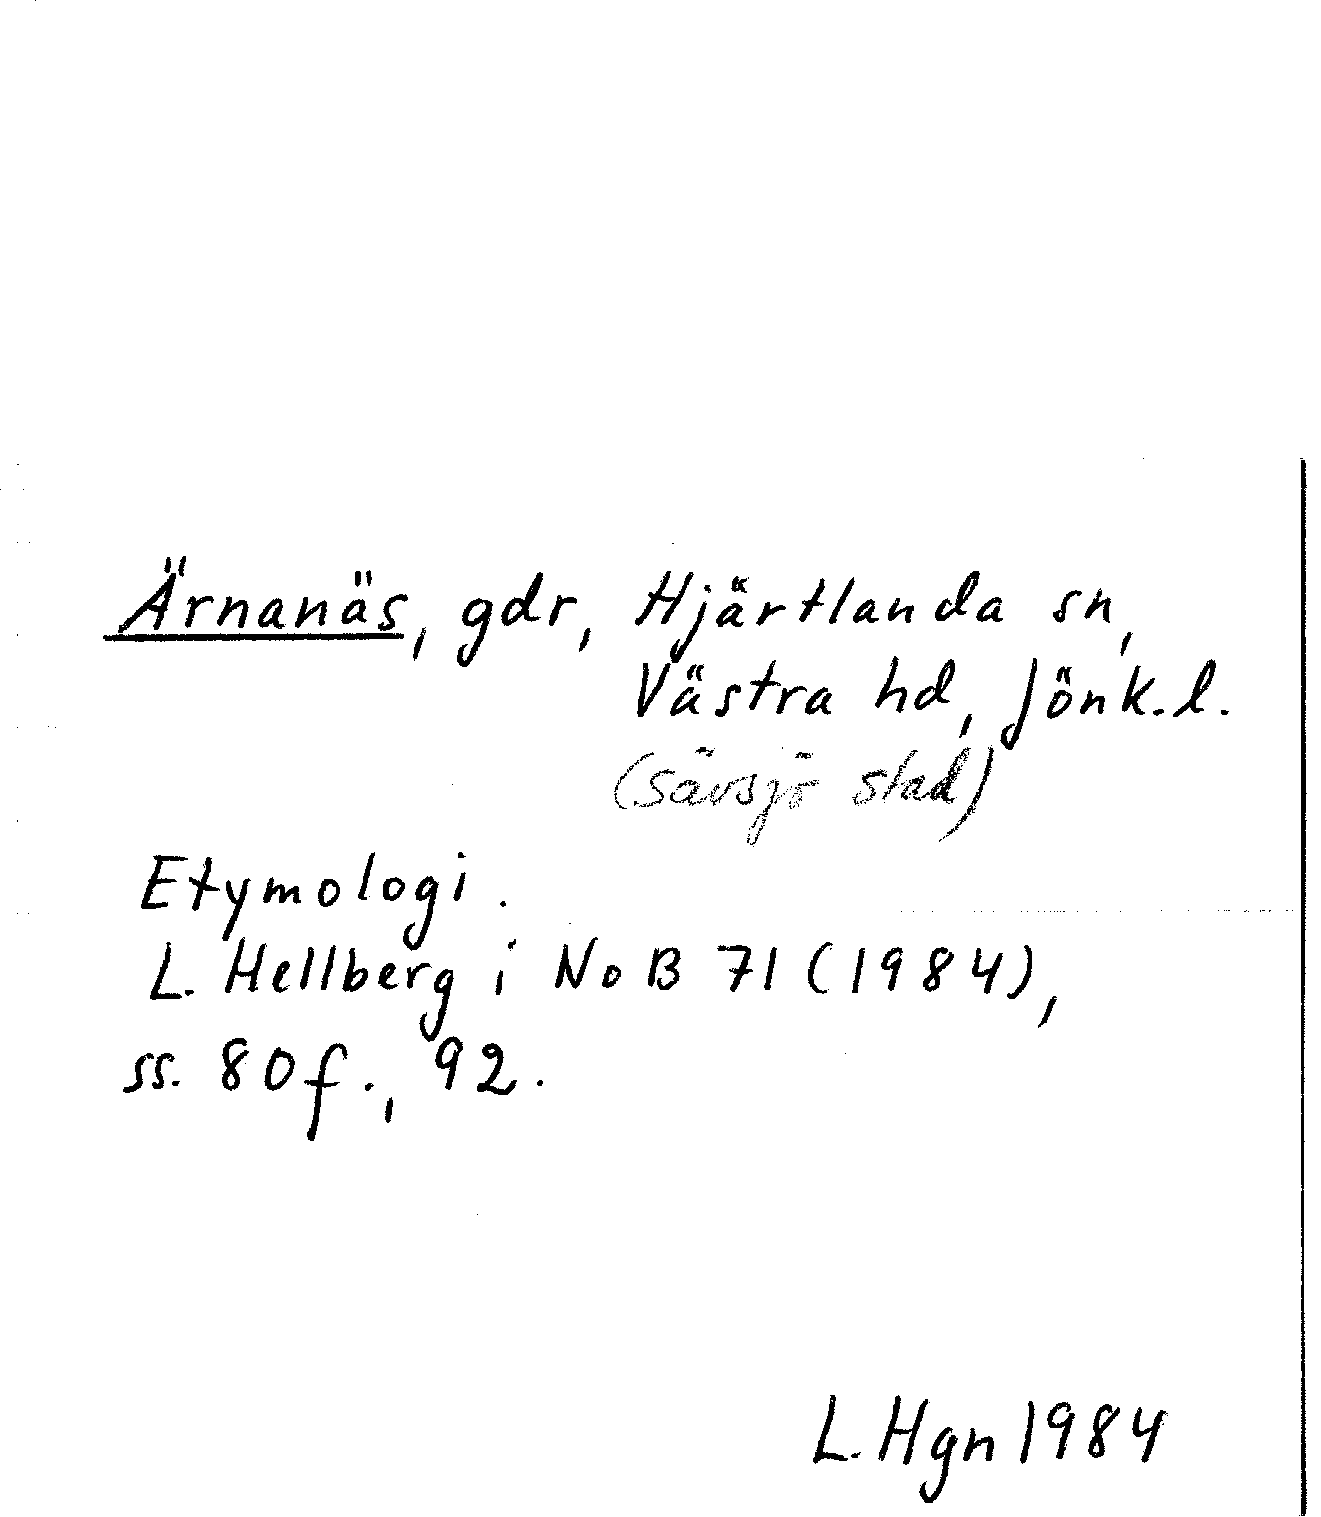 Ärnanäs, gdr, Hjärtlanda sn,
Västra hd, Jönk.l.
(Sävsjö stad)
Etymologi.
L. Hellberg i NoB 71 (1984),
ss. 80f., 92.
L. Hgn 1984